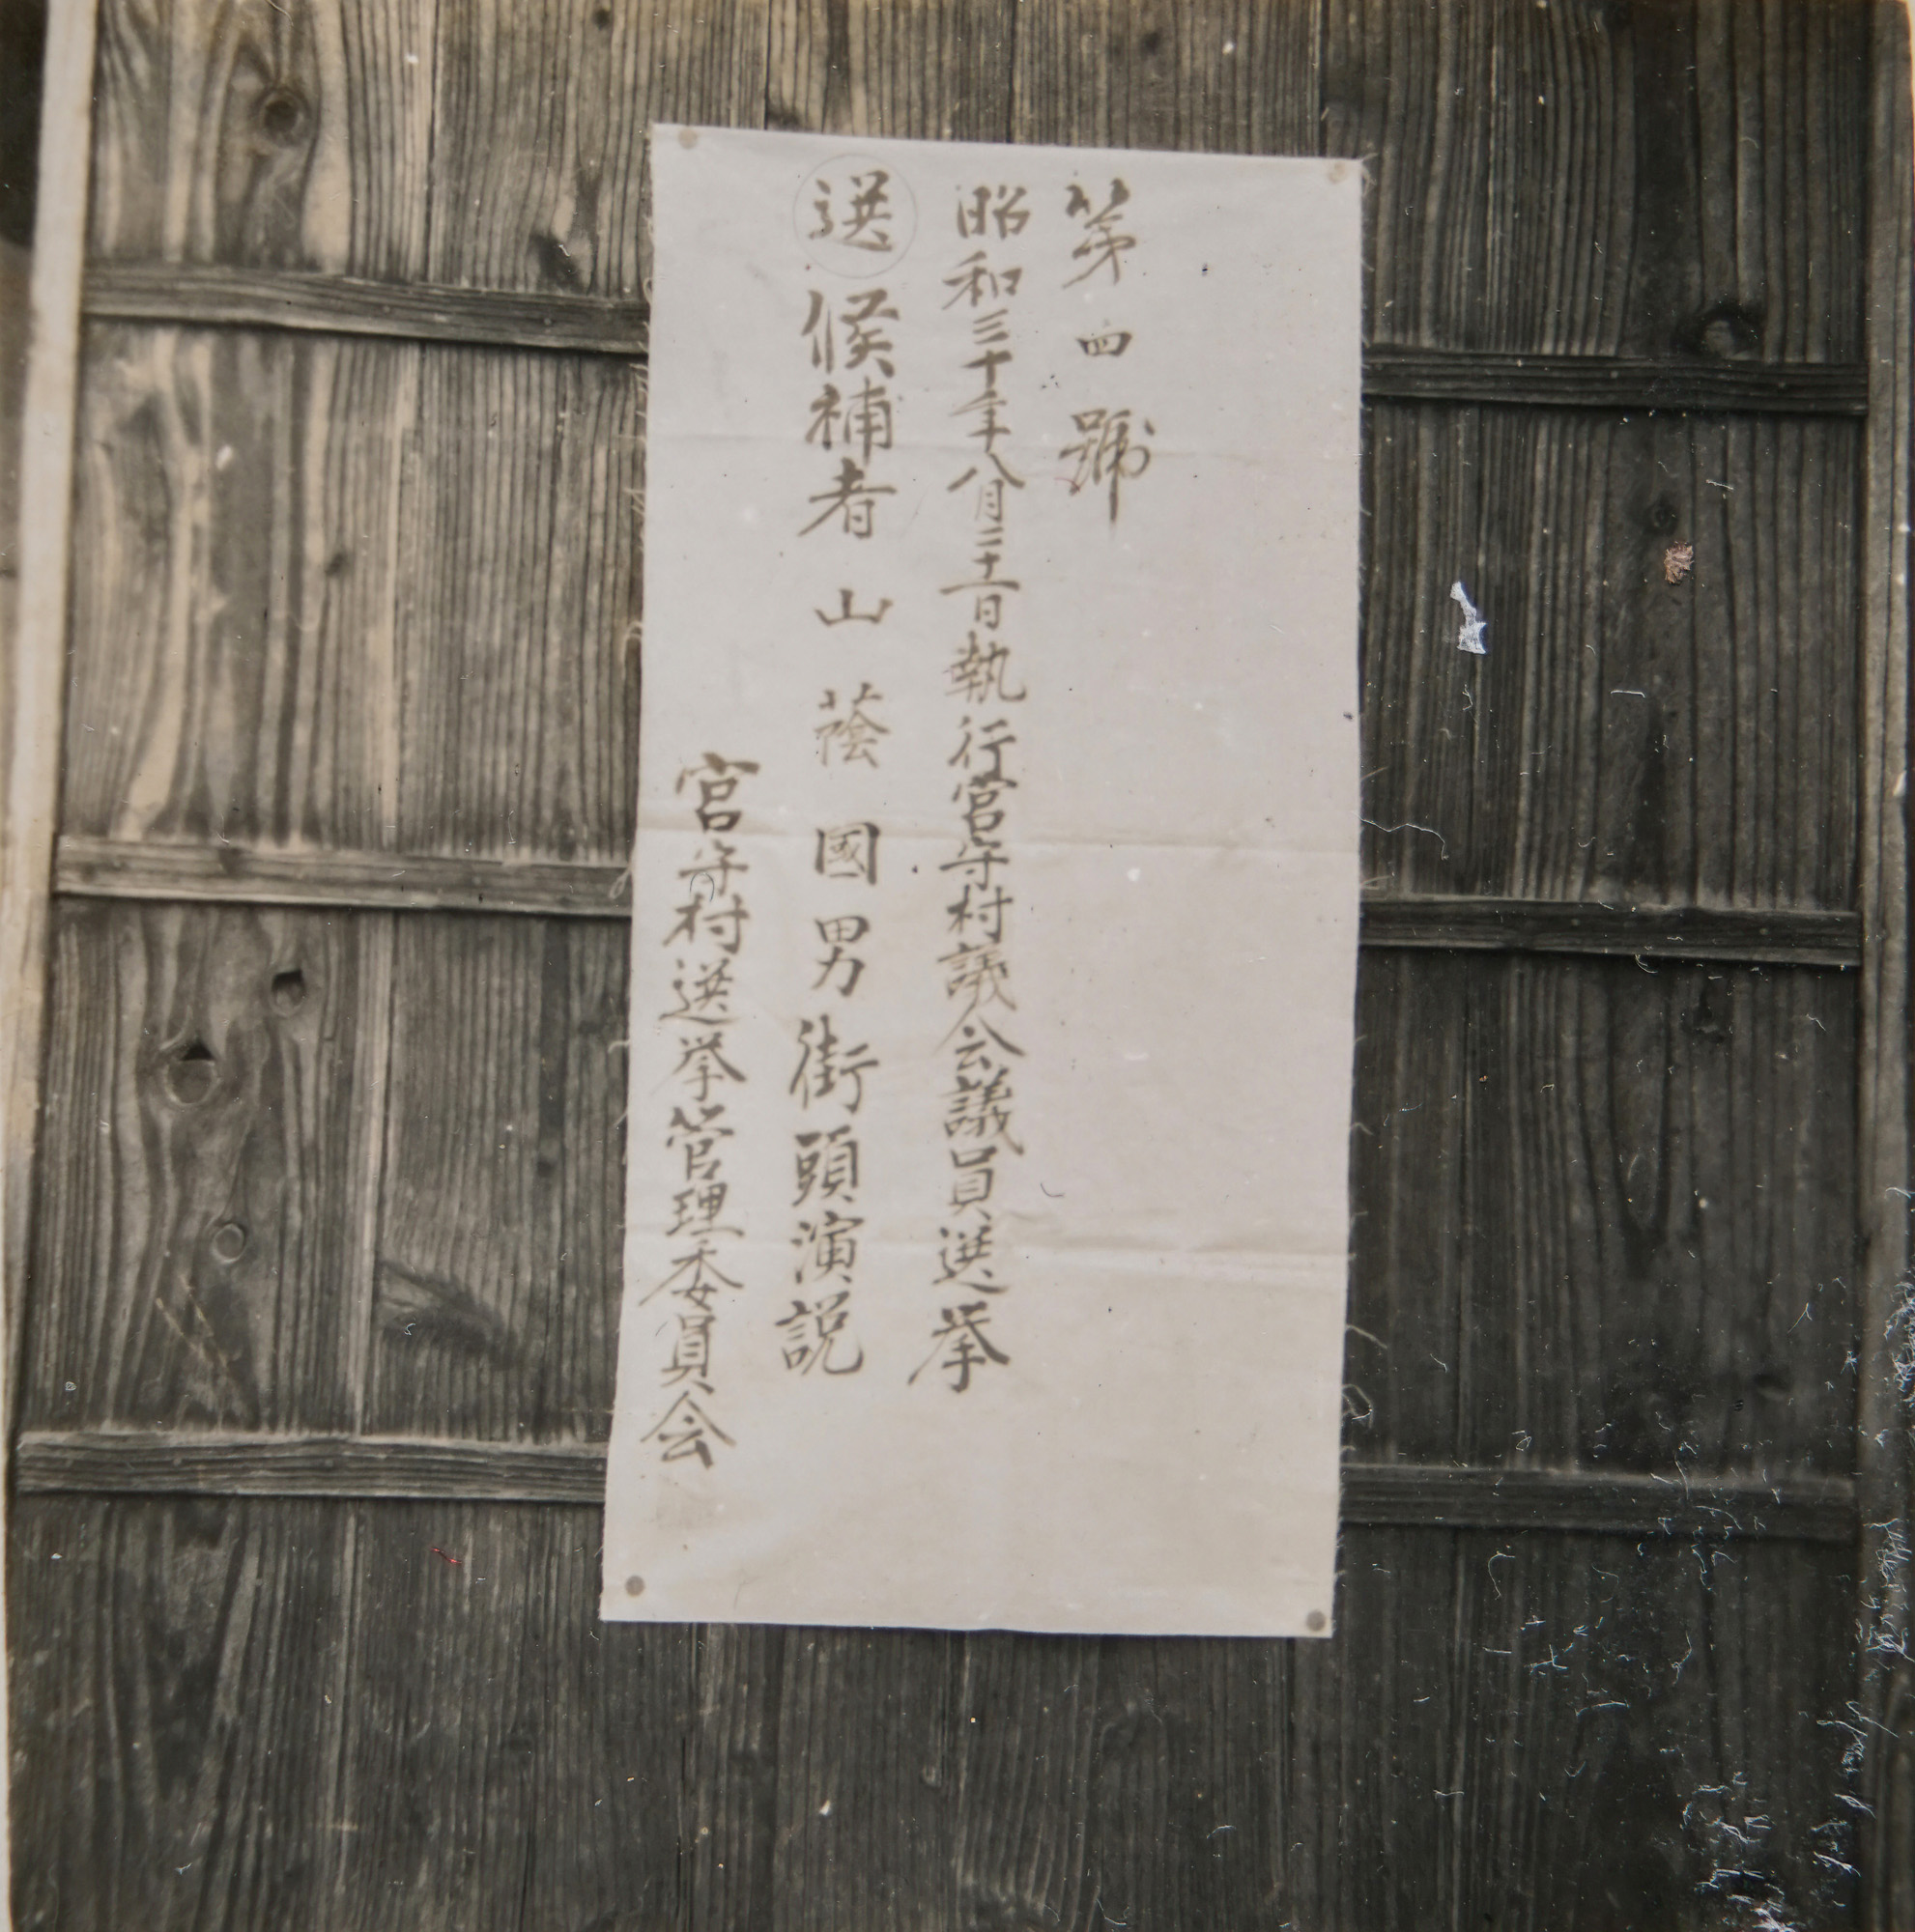 第四號
昭和三十年八月二十一日執行宮守村議会議員選挙
選 候補者 山蔭國男街頭演説
宮守村選挙管理委員会